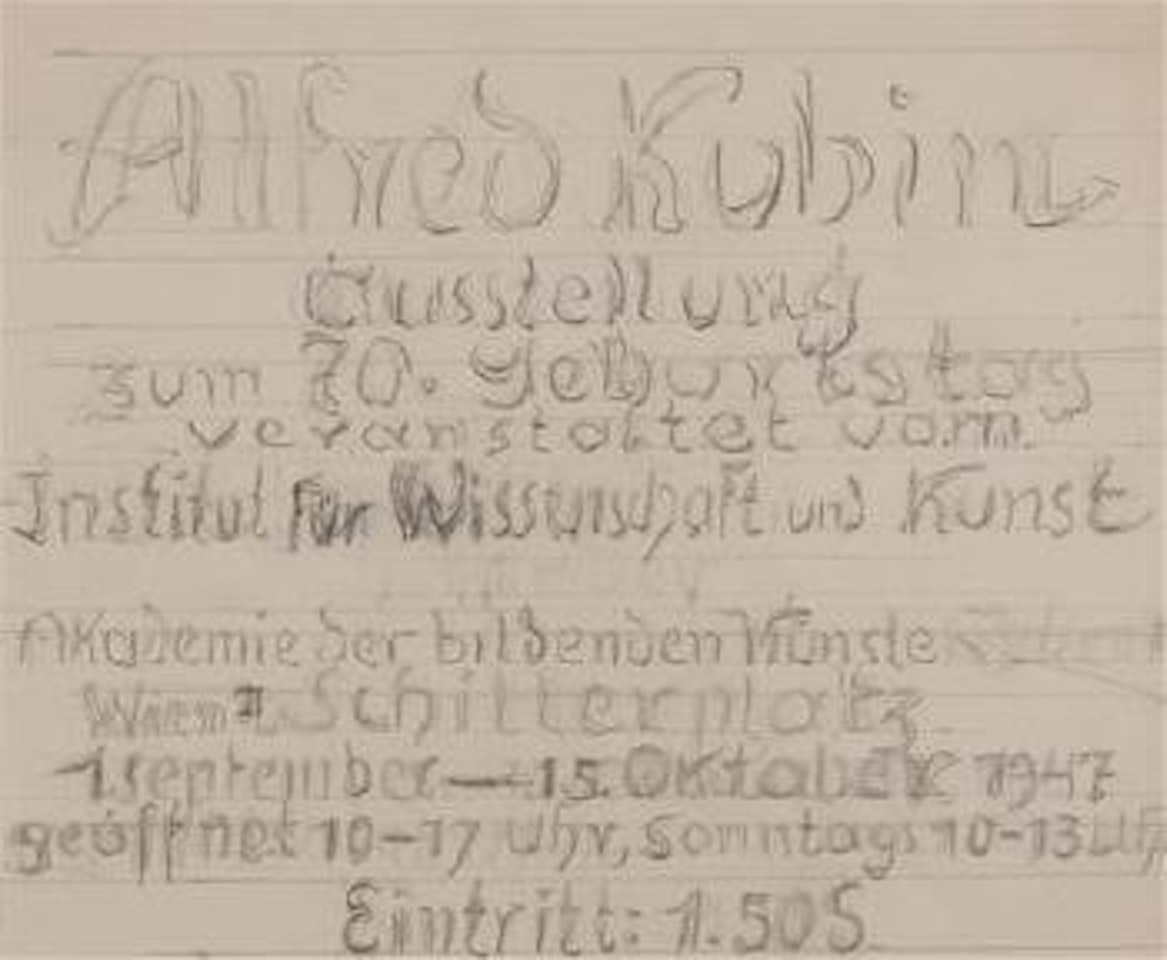 Alfred Kubin
Ausstellung
zum 70. Geburtstag
veranstaltet vom
Institut für Wissenschaft und Kunst
Akademie der bildenden Künste
Wien I. Schillerplatz
1. September — 15. Oktober 1947
geöffnet 10-17 Uhr, Sonntags 10-13 Uhr
Eintritt: 1.50 S